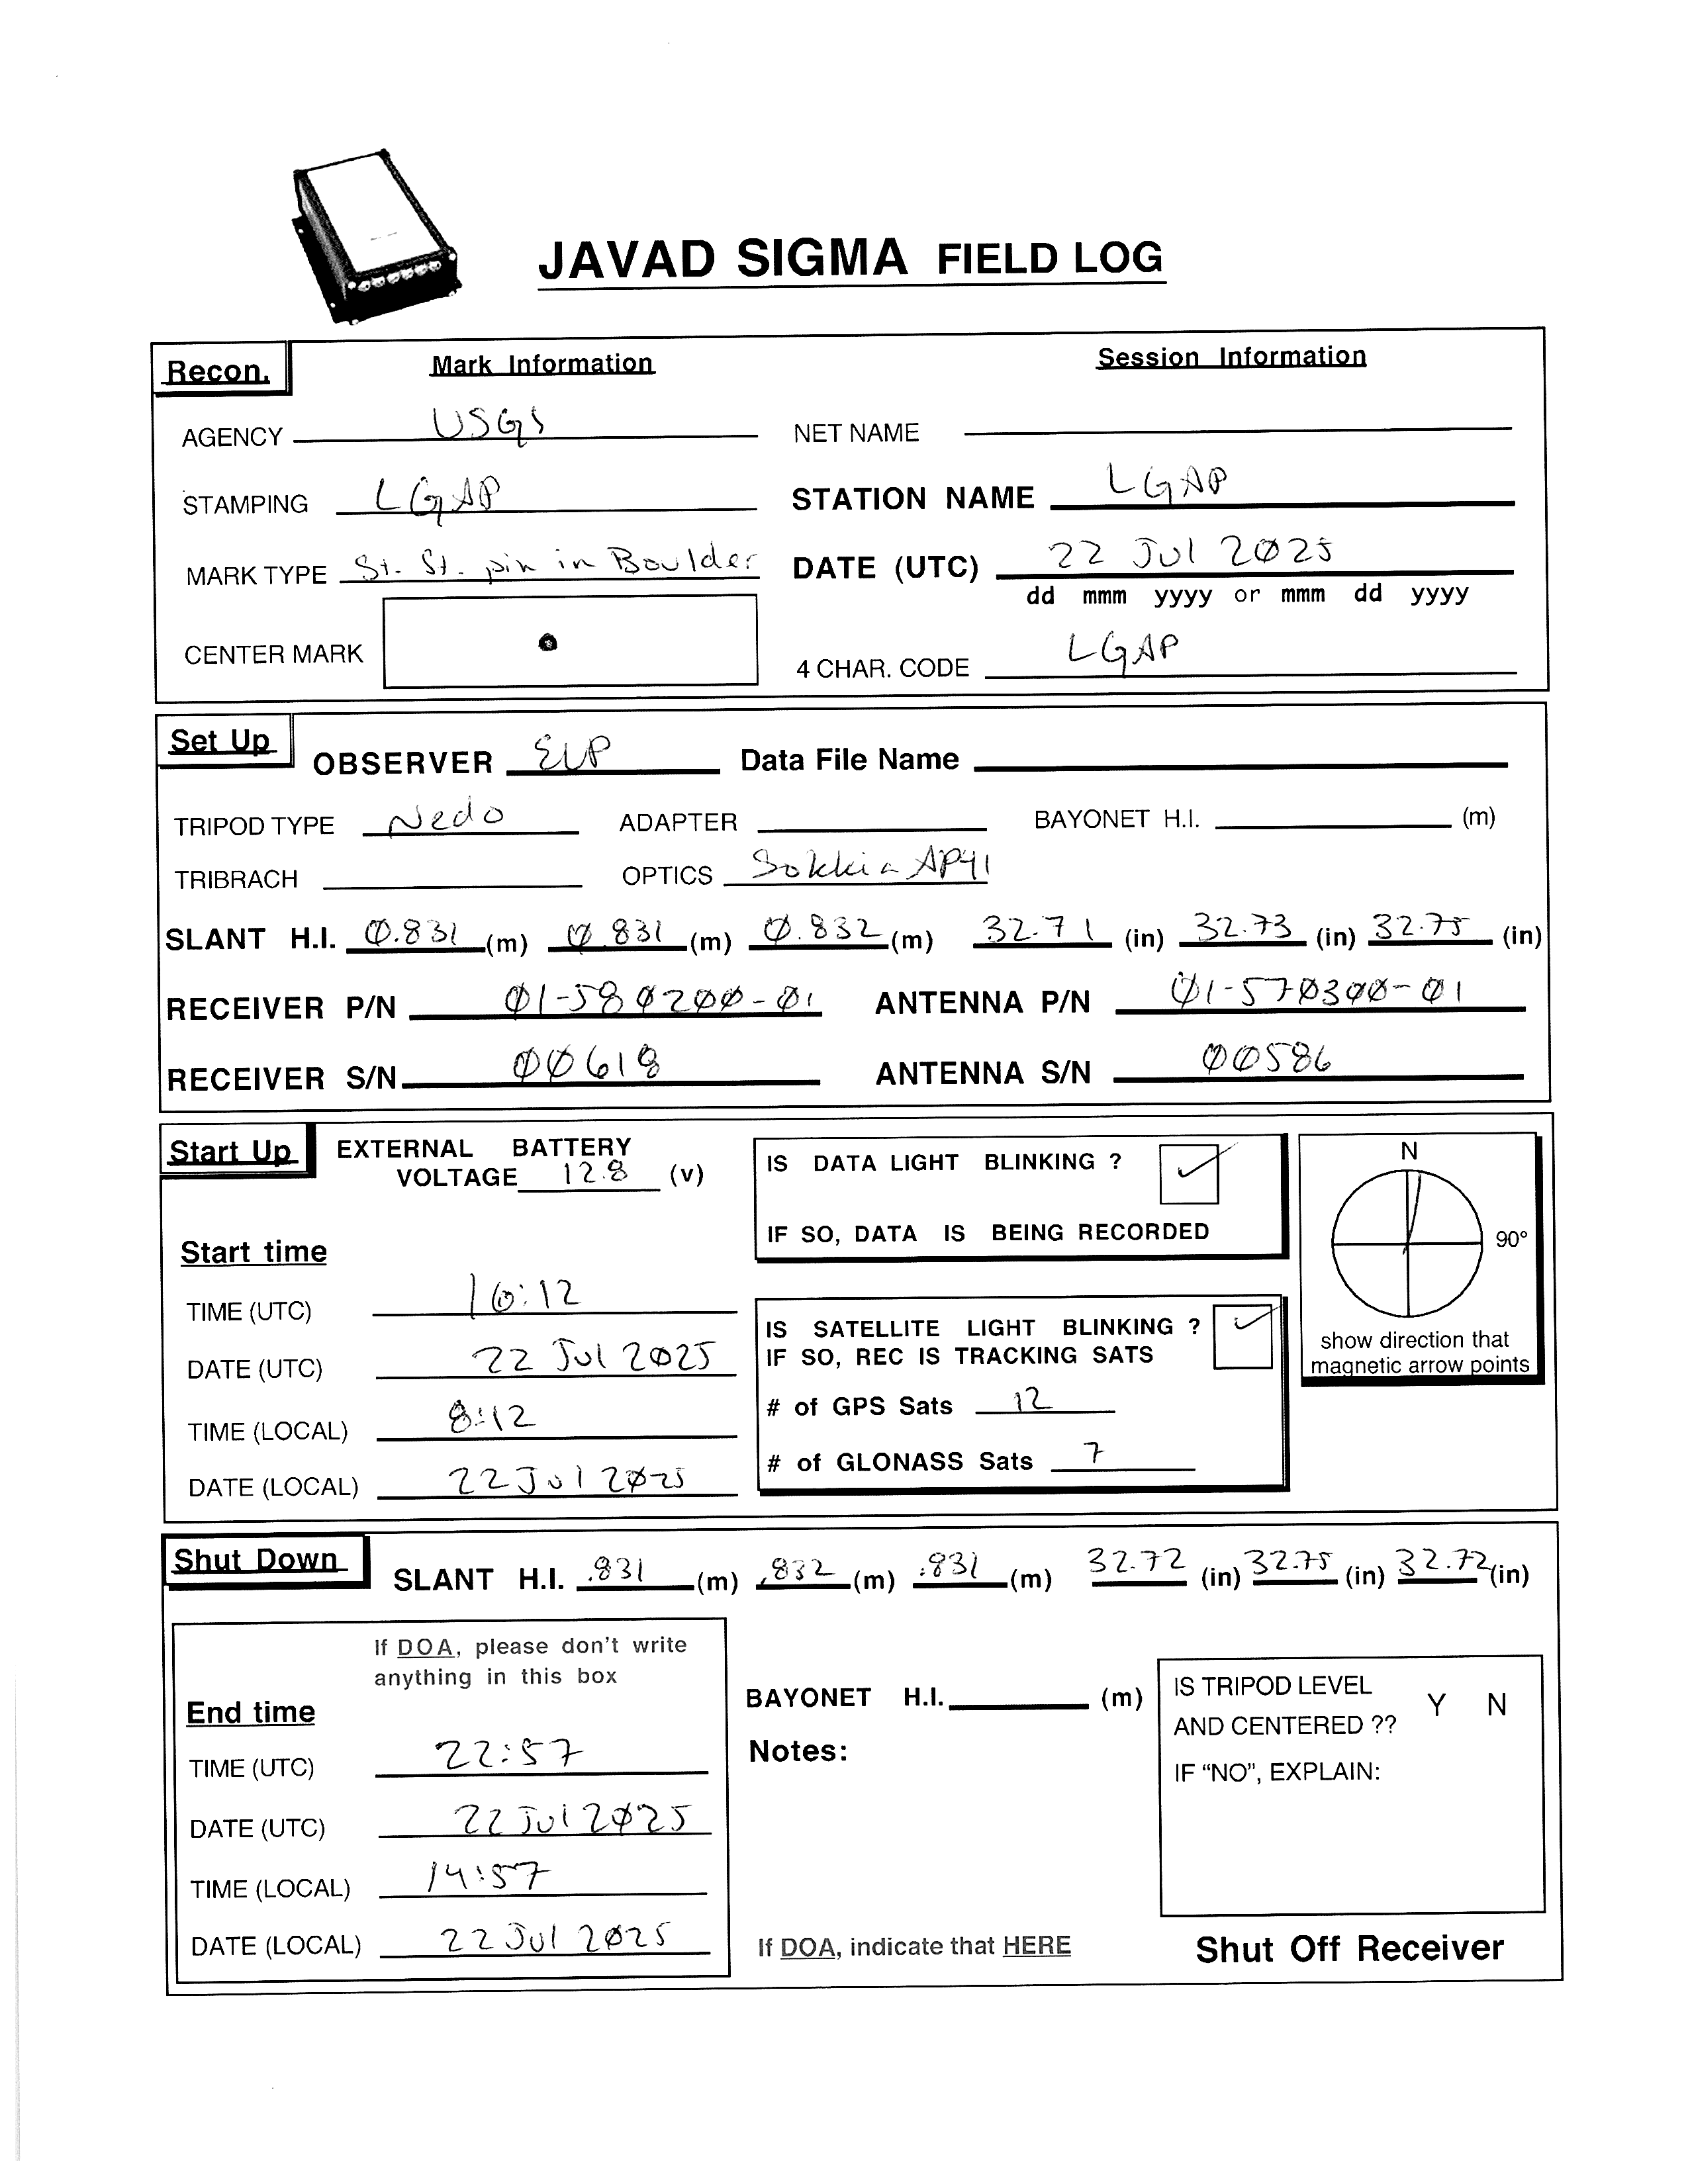 JAVAD SIGMA FIELD LOG
Recon. Mark Information Session Information
AGENCY USGS NET NAME
STAMPING LGAP STATION NAME LGAP
MARK TYPE St. St. pin in Boulder DATE (UTC) 22 Jul 2025
dd mmm yyyy or mmm dd yyyy
CENTER MARK 4 CHAR. CODE LGAP
Set Up OBSERVER ELP Data File Name
TRIPOD TYPE Nedo ADAPTER BAYONET H.I. (m)
TRIBRACH OPTICS Sokkia AP41
SLANT H.I. 0.831 (m) 0.831 (m) 0.832 (m) 32.71 (in) 32.73 (in) 32.75 (in)
RECEIVER P/N 01-580200-01 ANTENNA P/N 01-570300-01
RECEIVER S/N 00618 ANTENNA S/N 00586
Start Up EXTERNAL BATTERY
VOLTAGE 12.8 (v)
IS DATA LIGHT BLINKING ?
IF SO, DATA IS BEING RECORDED
N
90°
show direction that
magnetic arrow points
Start time
TIME (UTC) 16:12
DATE (UTC) 22 Jul 2025
TIME (LOCAL) 8:12
DATE (LOCAL) 22 Jul 2025
IS SATELLITE LIGHT BLINKING ?
IF SO, REC IS TRACKING SATS
# of GPS Sats 12
# of GLONASS Sats 7
Shut Down SLANT H.I. .831 (m) .832 (m) .831 (m) 32.72 (in) 32.75 (in) 32.72 (in)
If DOA, please don't write
anything in this box
End time
TIME (UTC) 22:57
DATE (UTC) 22 Jul 2025
TIME (LOCAL) 14:57
DATE (LOCAL) 22 Jul 2025
BAYONET H.I. (m)
Notes:
IS TRIPOD LEVEL
AND CENTERED ?? Y N
IF "NO", EXPLAIN:
If DOA, indicate that HERE
Shut Off Receiver